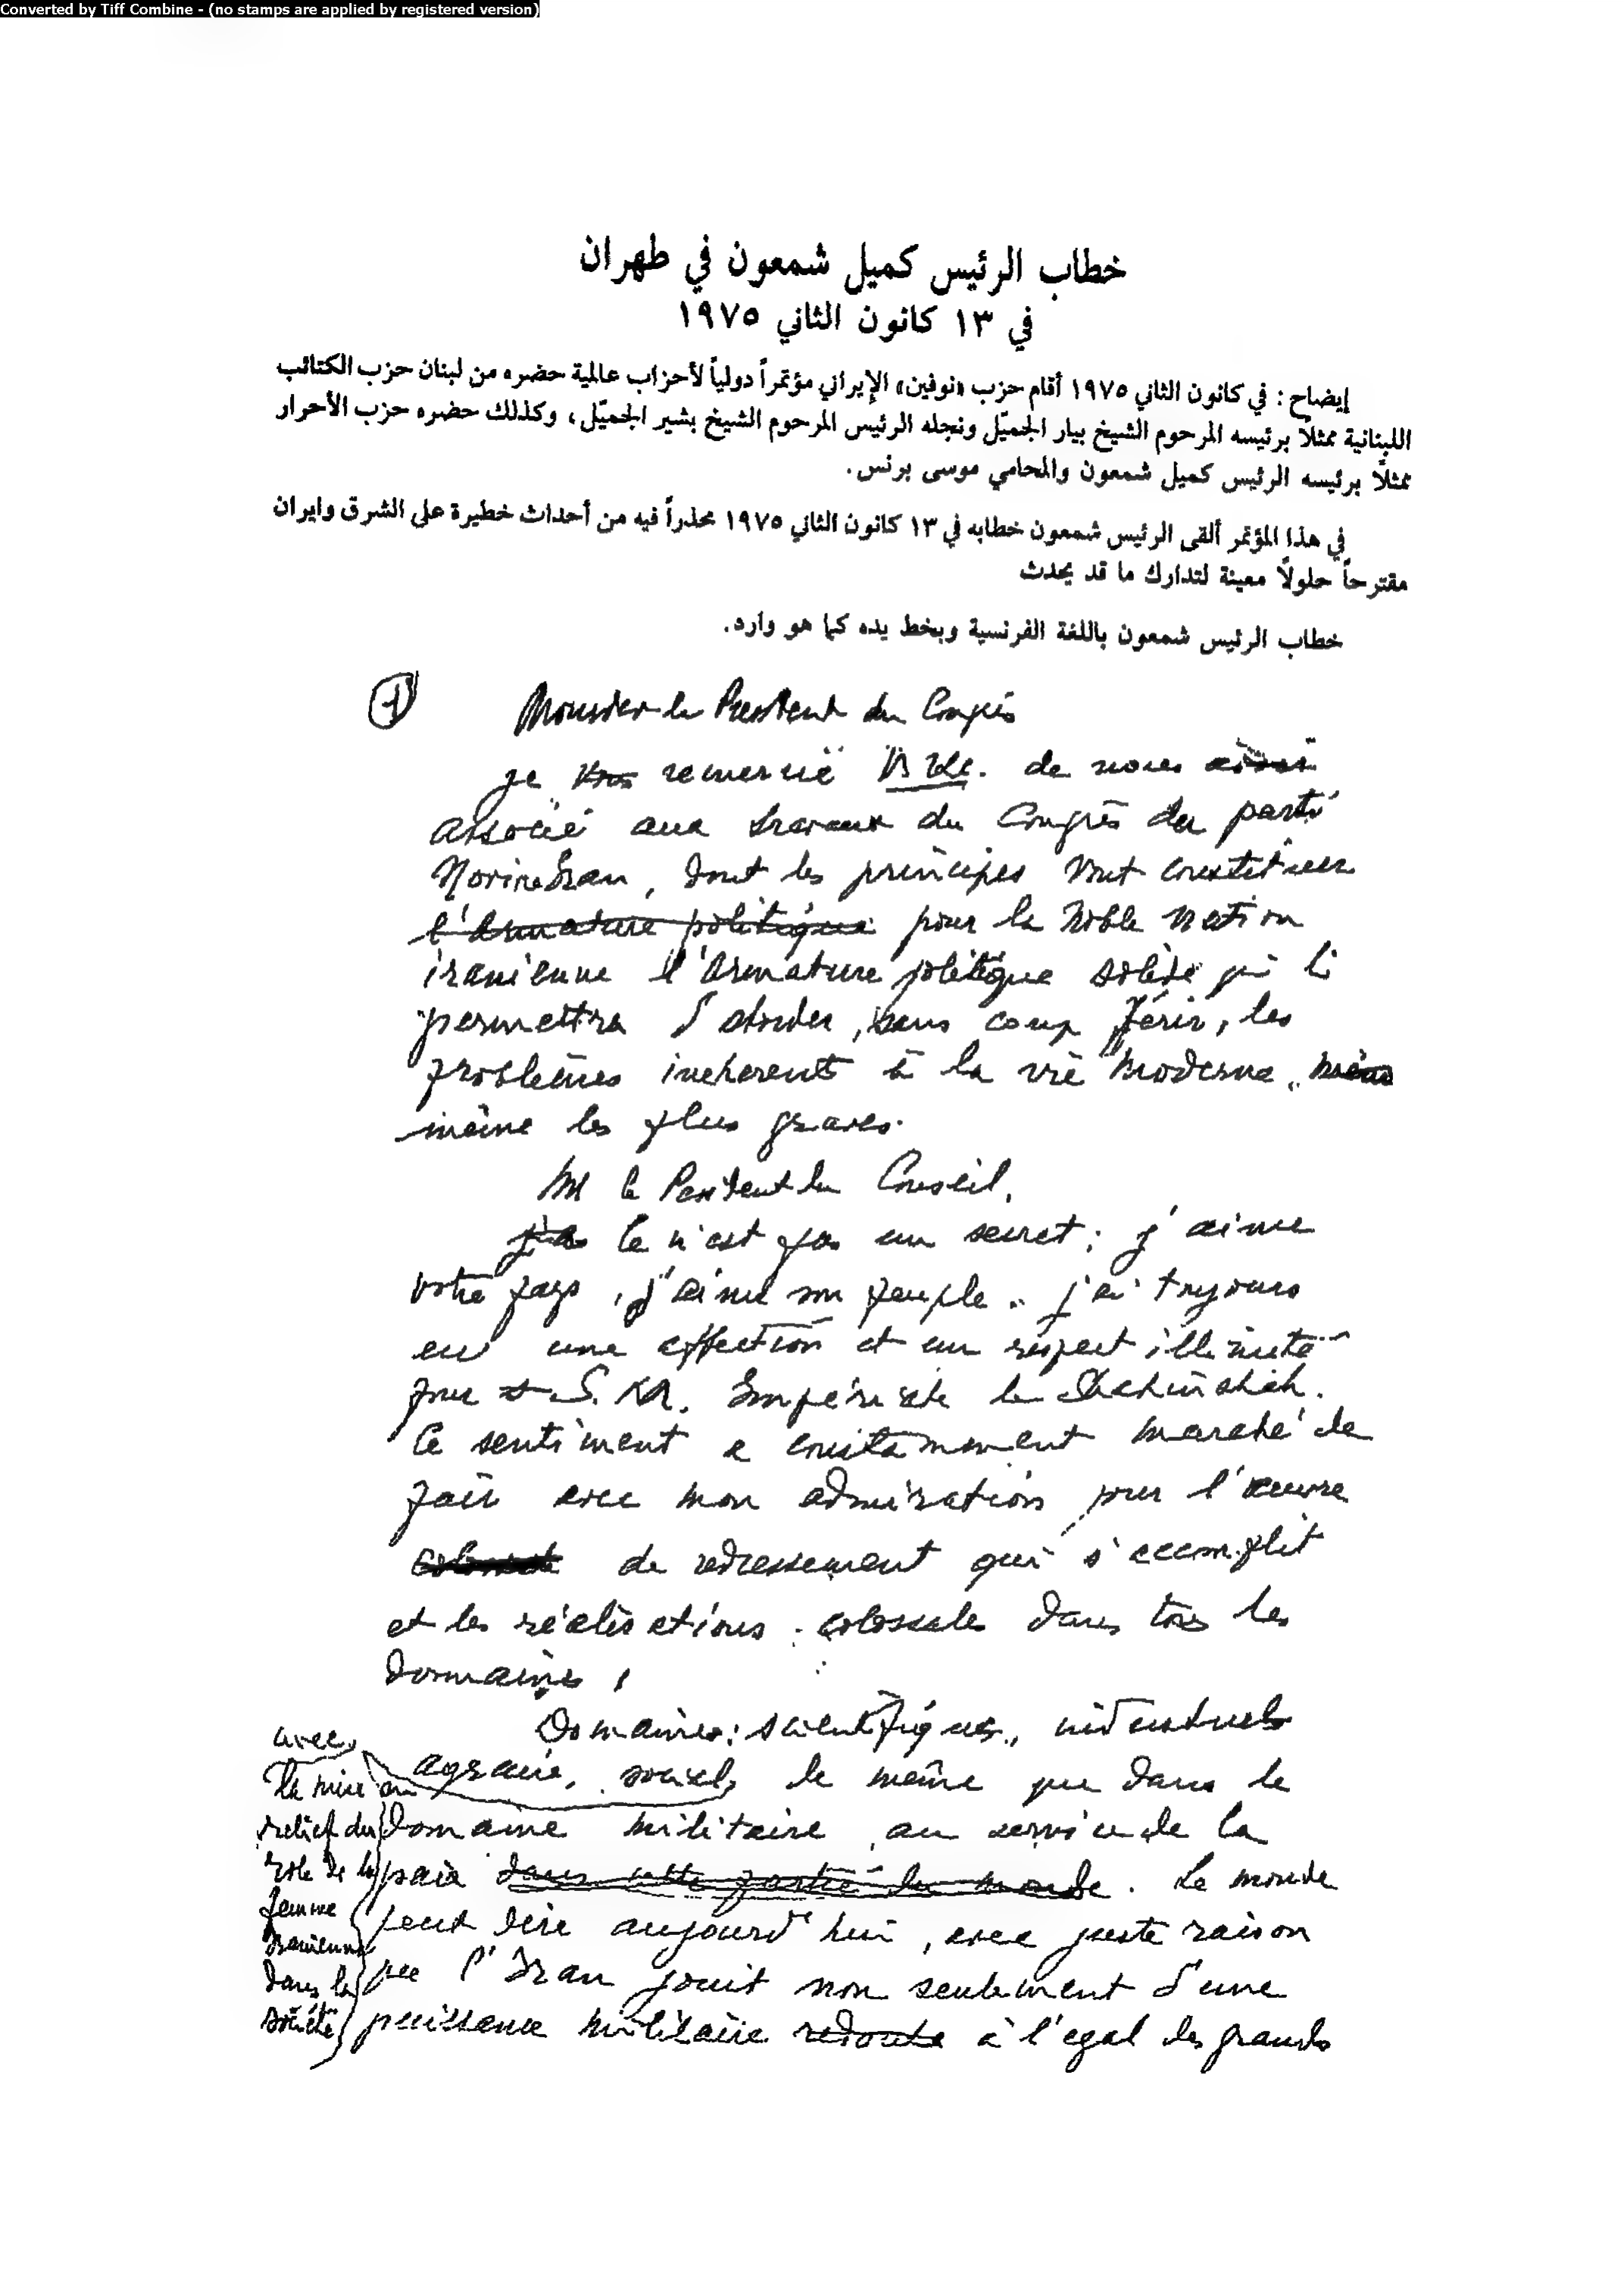 Converted by Tiff Combine - (no stamps are applied by registered version)
خطاب الرئيس كميل شمعون في طهران
في ١٣ كانون الثاني ١٩٧٥
إيضاح : في كانون الثاني ١٩٧٥ أقام حزب «نوفين» الإيراني مؤتمراً دولياً لأحزاب عالمية حضره من لبنان حزب الكتائب
اللبنانية ممثلاً برئيسه المرحوم الشيخ بيار الجميّل ونجله الرئيس المرحوم الشيخ بشير الجميّل، وكذلك حضره حزب الأحرار
ممثلاً برئيسه الرئيس كميل شمعون والمحامي موسى برنس.
في هذا المؤتمر ألقى الرئيس شمعون خطابه في ١٣ كانون الثاني ١٩٧٥ محذراً فيه من أحداث خطيرة على الشرق وايران
مقترحاً حلولاً معينة لتدارك ما قد يحدث
خطاب الرئيس شمعون باللغة الفرنسية وبخط يده كما هو وارد.
1 Monsieur le President du Congrès
je vous remercie de nous
associé aux travaux du Congrès du parti
Novine Iran, dont les principes vont constituer
l'armature politique pour la noble nation
iranienne l'armature politique solide qui lui
permettra d'aborder, sans coup férir, les
problèmes inhérents à la vie moderne, même
même les plus graves.
M le President du Conseil,
Ce n'est pas un secret; j'aime
votre pays, j'aime son peuple. j'ai toujours
eu une affection et un respect illimité
pour S. M. Impériale le Shahinshah.
Ce sentiment a constamment marché de
pair avec mon admiration pour l'œuvre
de redressement qui s'accomplit
et les réalisations colossales dans tous les
domaines,
Domaines: scientifiques, industriels
agraire, social, de même que dans le
domaine militaire au service de la
paix dans cette partie du monde. Le monde
peut dire aujourd'hui, avec juste raison
que l'Iran jouit non seulement d'une
puissance militaire redoute à l'egal des grands
avec
la mise en
relief du
role de la
femme
iranienne
dans la
société